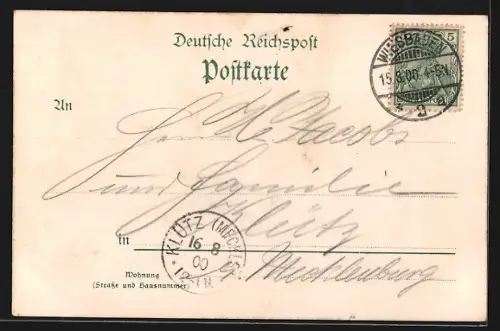 Deutsche Reichspost
Postkarte
5
WIESBADEN
15.8.00. 4-5N.
2
An
Herrn H. Jacobs
und Familie
Klütz
in
i/ Mecklenburg
KLÜTZ (MECKLB
16 8
00
Wohnung
(Straße und Hausnummer)